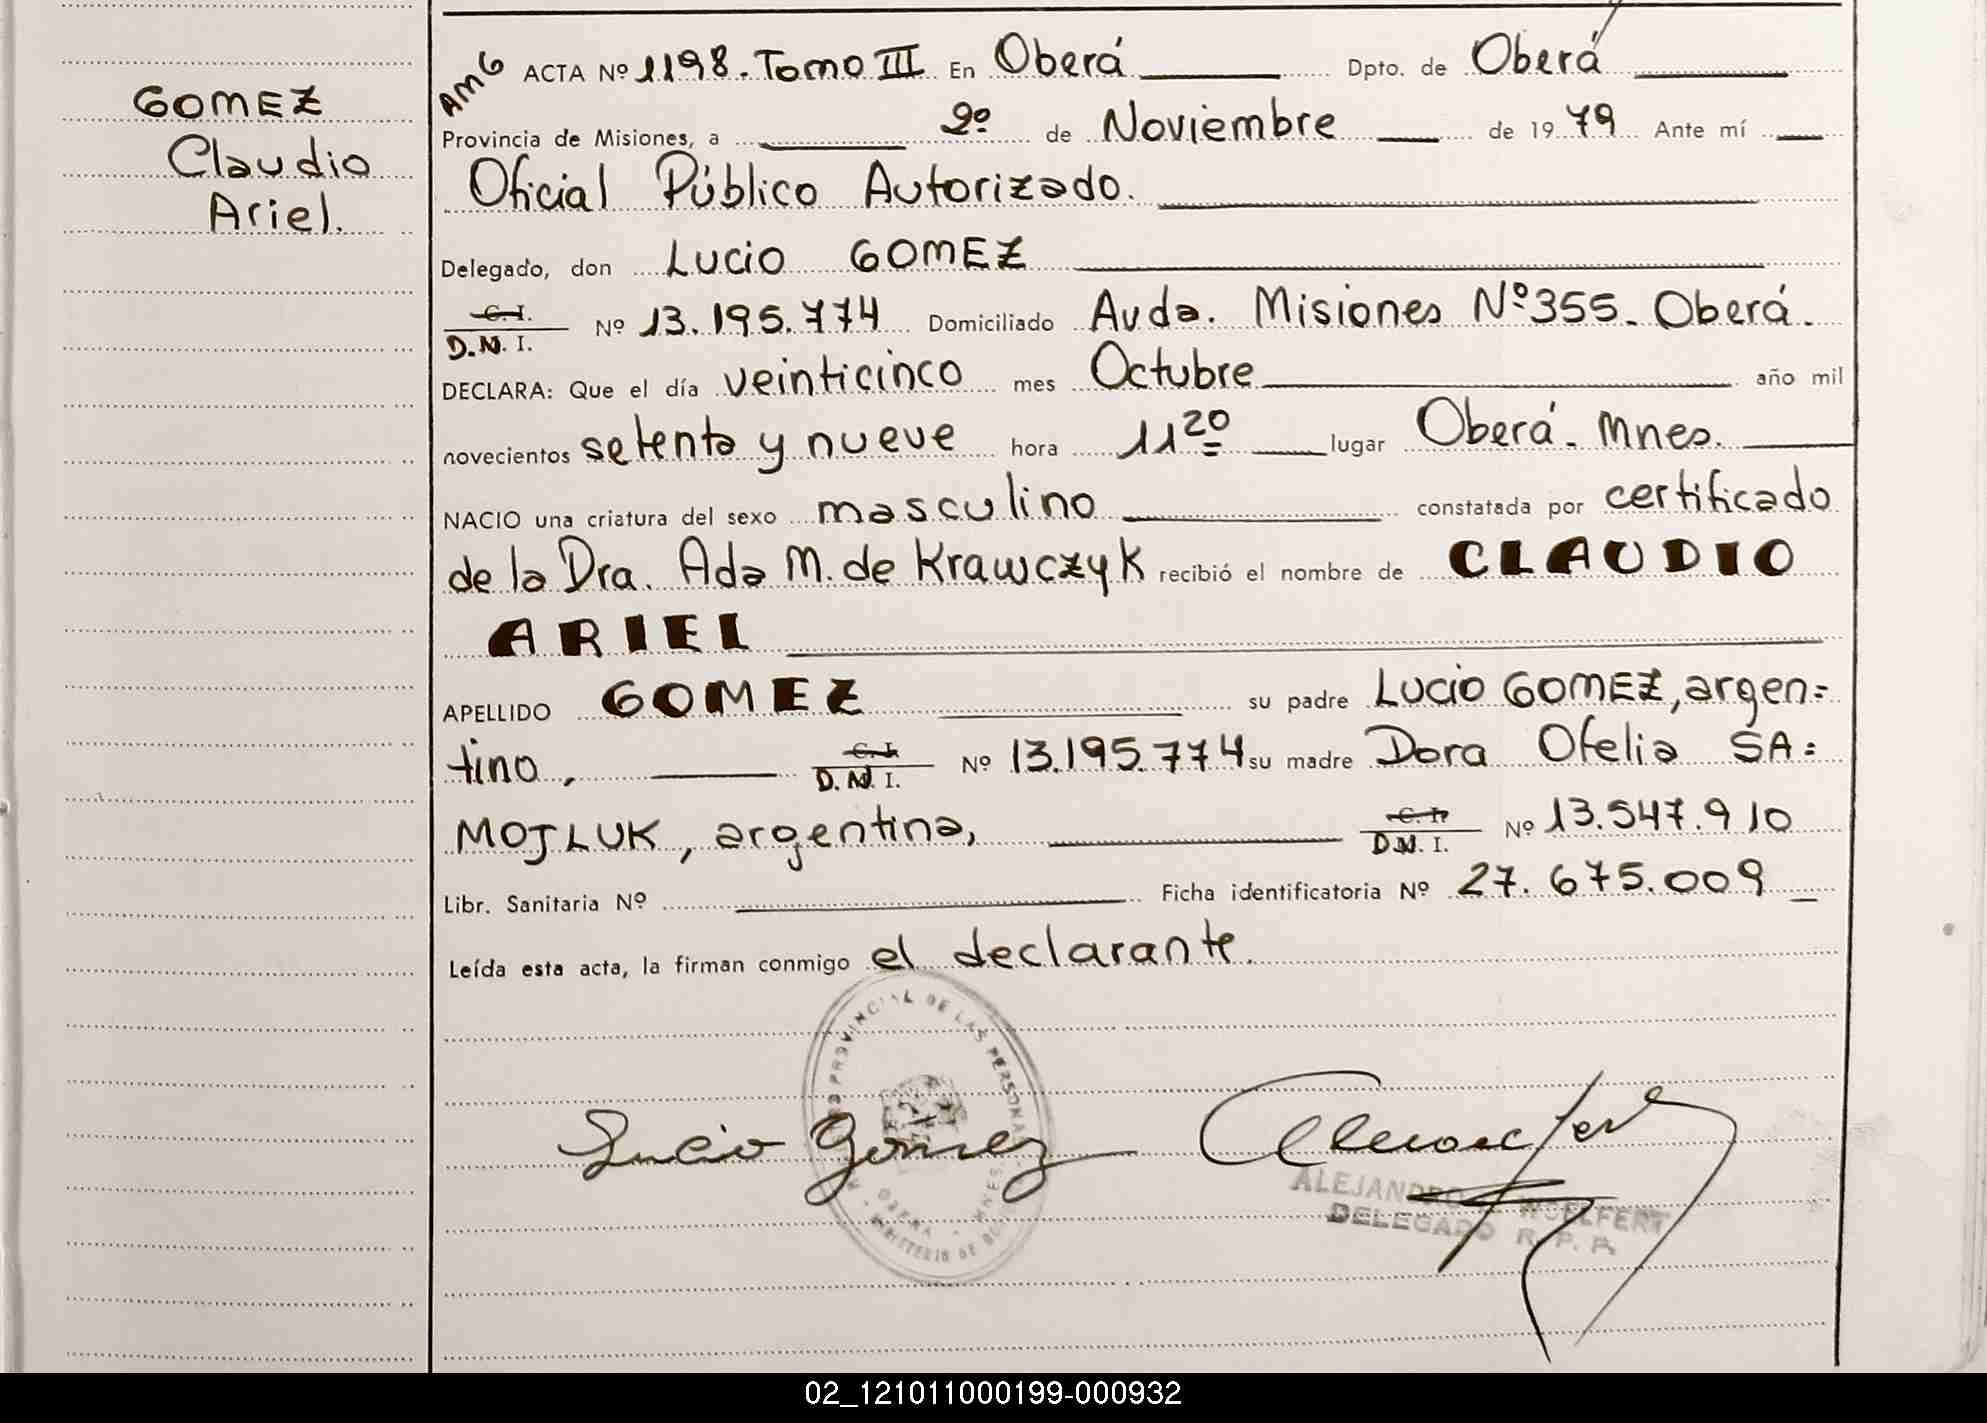 GOMEZ
Claudio
Ariel.
AMG ACTA Nº 1198. Tomo III En Oberá Dpto. de Oberá
Provincia de Misiones, a 2º de Noviembre de 1979 Ante mí
Oficial Público Autorizado.
Delegado, don Lucio GOMEZ
C. I.
D.N. I. Nº 13.195.774 Domiciliado Avda. Misiones Nº 355. Oberá.
DECLARA: Que el día veinticinco mes Octubre año mil
novecientos setenta y nueve hora 11 20 lugar Oberá. Mnes.
NACIO una criatura del sexo masculino constatada por certificado
de la Dra. Ada M. de Krawczyk recibió el nombre de CLAUDIO
ARIEL
APELLIDO GOMEZ su padre Lucio GOMEZ, argen=
tino, C. I. D.N. I. Nº 13.195.774 su madre Dora Ofelia SA=
MOJLUK, argentina, C. I. D.N. I. Nº 13.547.910
Libr. Sanitaria Nº Ficha identificatoria Nº 27.675.009
Leída esta acta, la firman conmigo el declarante.
PROVINCIAL DE LAS PERSONAS
Lucio Gomez
OBERA - MNES.
MINISTERIO DE
ALEJANDRO WUELFERT
DELEGADO R. P. P.
02_121011000199-000932